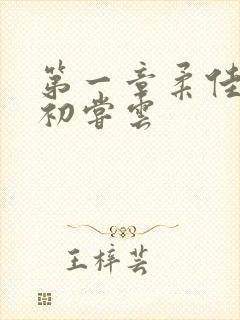 第一章柔佳
初尝云
王梓芸